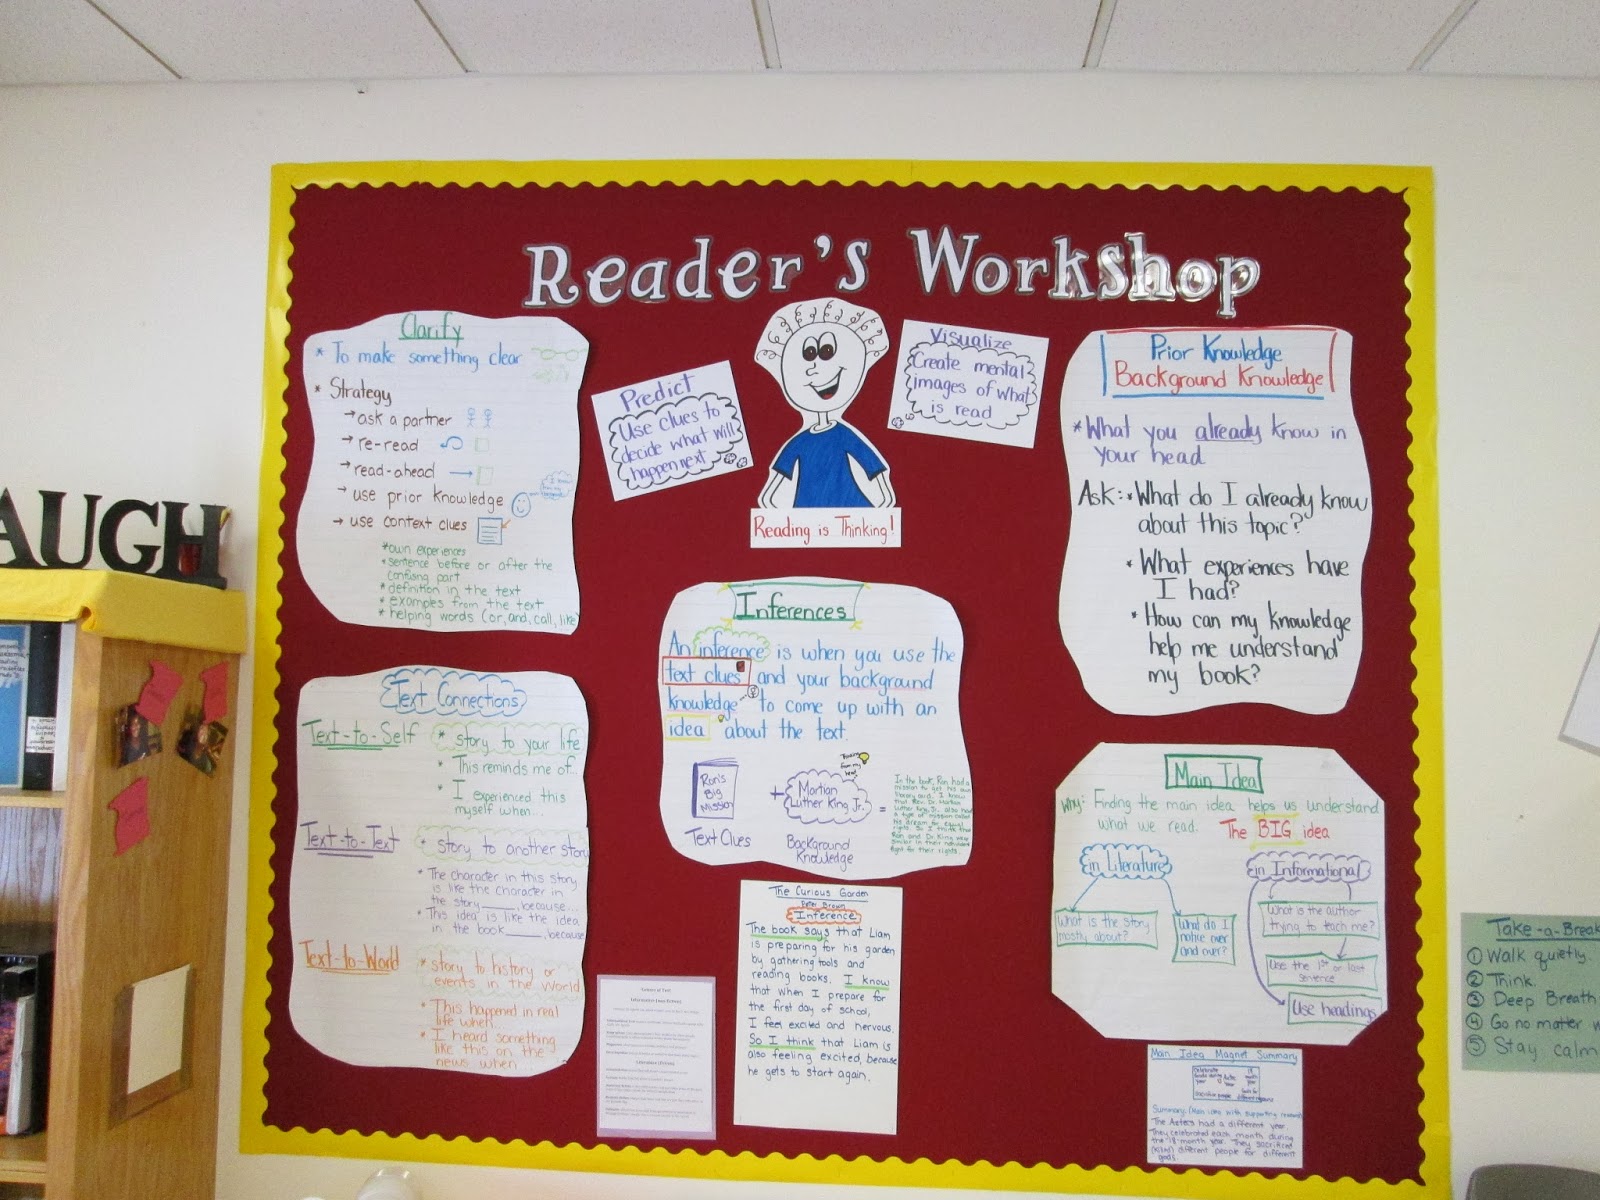 Reader's Workshop
Clarify
* To make something clear
* Strategy
→ ask a partner
→ re-read
→ read-ahead
→ use prior knowledge
→ use context clues
*own experiences
*sentence before or after the
confusing part
*definition in the text
*examples from the text
*helping words (or, and, call, like)
Predict
Use clues to
decide what will
happen next
Reading is Thinking!
Visualize
Create mental
images of what
is read
Prior Knowledge
Background Knowledge
*What you already know in
your head
Ask: *What do I already know
about this topic?
*What experiences have
I had?
*How can my knowledge
help me understand
my book?
Text Connections
Text-to-Self
* story to your life
* This reminds me of...
* I experienced this
myself when...
Text-to-Text
* story to another story
* The character in this story
is like the character in
the story ____, because...
* This idea is like the idea
in the book ____, because
Text-to-World
* story to history or
events in the world
* This happened in real
life when...
* I heard something
like this on the
news when
Inferences
An inference is when you use the
text clues and your background
knowledge to come up with an
idea about the text.
Ron's
Big
Mission
Text Clues
+
Martian
Luther King Jr.
Background
Knowledge
=
In the book, Ron had a
mission to get his own
library card. I know
that Rev. Dr. Martian
Luther King Jr. also had
a type of mission called
his dream for equal
rights. So I think that
Ron and Dr. King were
similar in their
fight for their rights.
The Curious Garden
Peter Brown
Inference
The book says that Liam
is preparing for his garden
by gathering tools and
reading books. I know
that when I prepare for
the first day of school,
I feel excited and nervous.
So I think that Liam is
also feeling excited, because
he gets to start again.
Main Idea
Why: Finding the main idea helps us understand
what we read. The BIG idea
in Literature
What is the story
mostly about?
What do I
notice over
and over?
in Informational
What is the author
trying to teach me?
Use the 1st or last
sentence
Use headings
Main Idea Magnet Summary
Summary: (Main idea with supporting
The Aztecs had a different year.
They celebrated each month during
the 18-month year. They sacrificed
(killed) different people for different
gods.
AUGH
Take-a-Break
1 Walk quietly.
2 Think.
3 Deep Breath
4 Go no matter
5 Stay calm